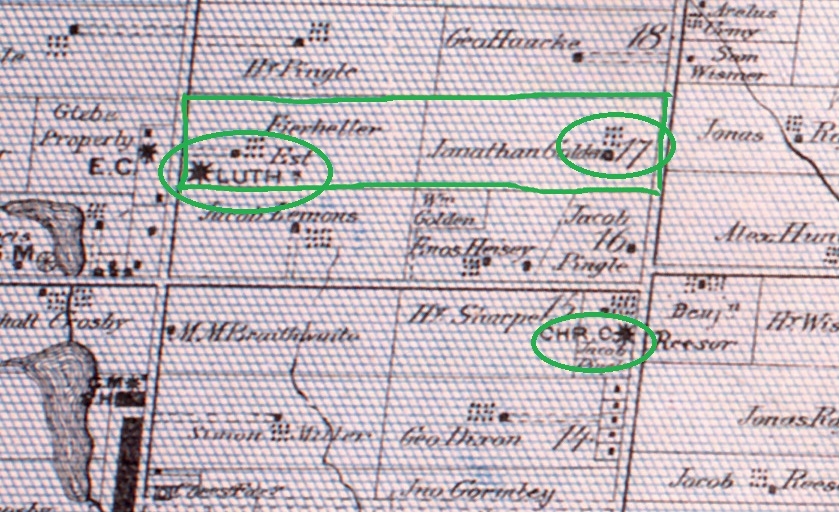 Geo Haacke 18
Hy Pingle
Sam
Wismer
Glebe
Property
E.C
Eierheller
Est
LUTH
Jonathan Golden 17
Jonas
Jacob Lemons
Wm
Golden
Enos Heisey
Jacob
16
Pingle
M
Alex Hun
Crosby
M.M. Braithwaite
Hy Sharpe 15
CHR. C.
Jacob
Benj
Reesor
Hy Wi
Simon Miller
Geo Dixon 14
Jonas Ra
Jno Gormley
Jacob Rees